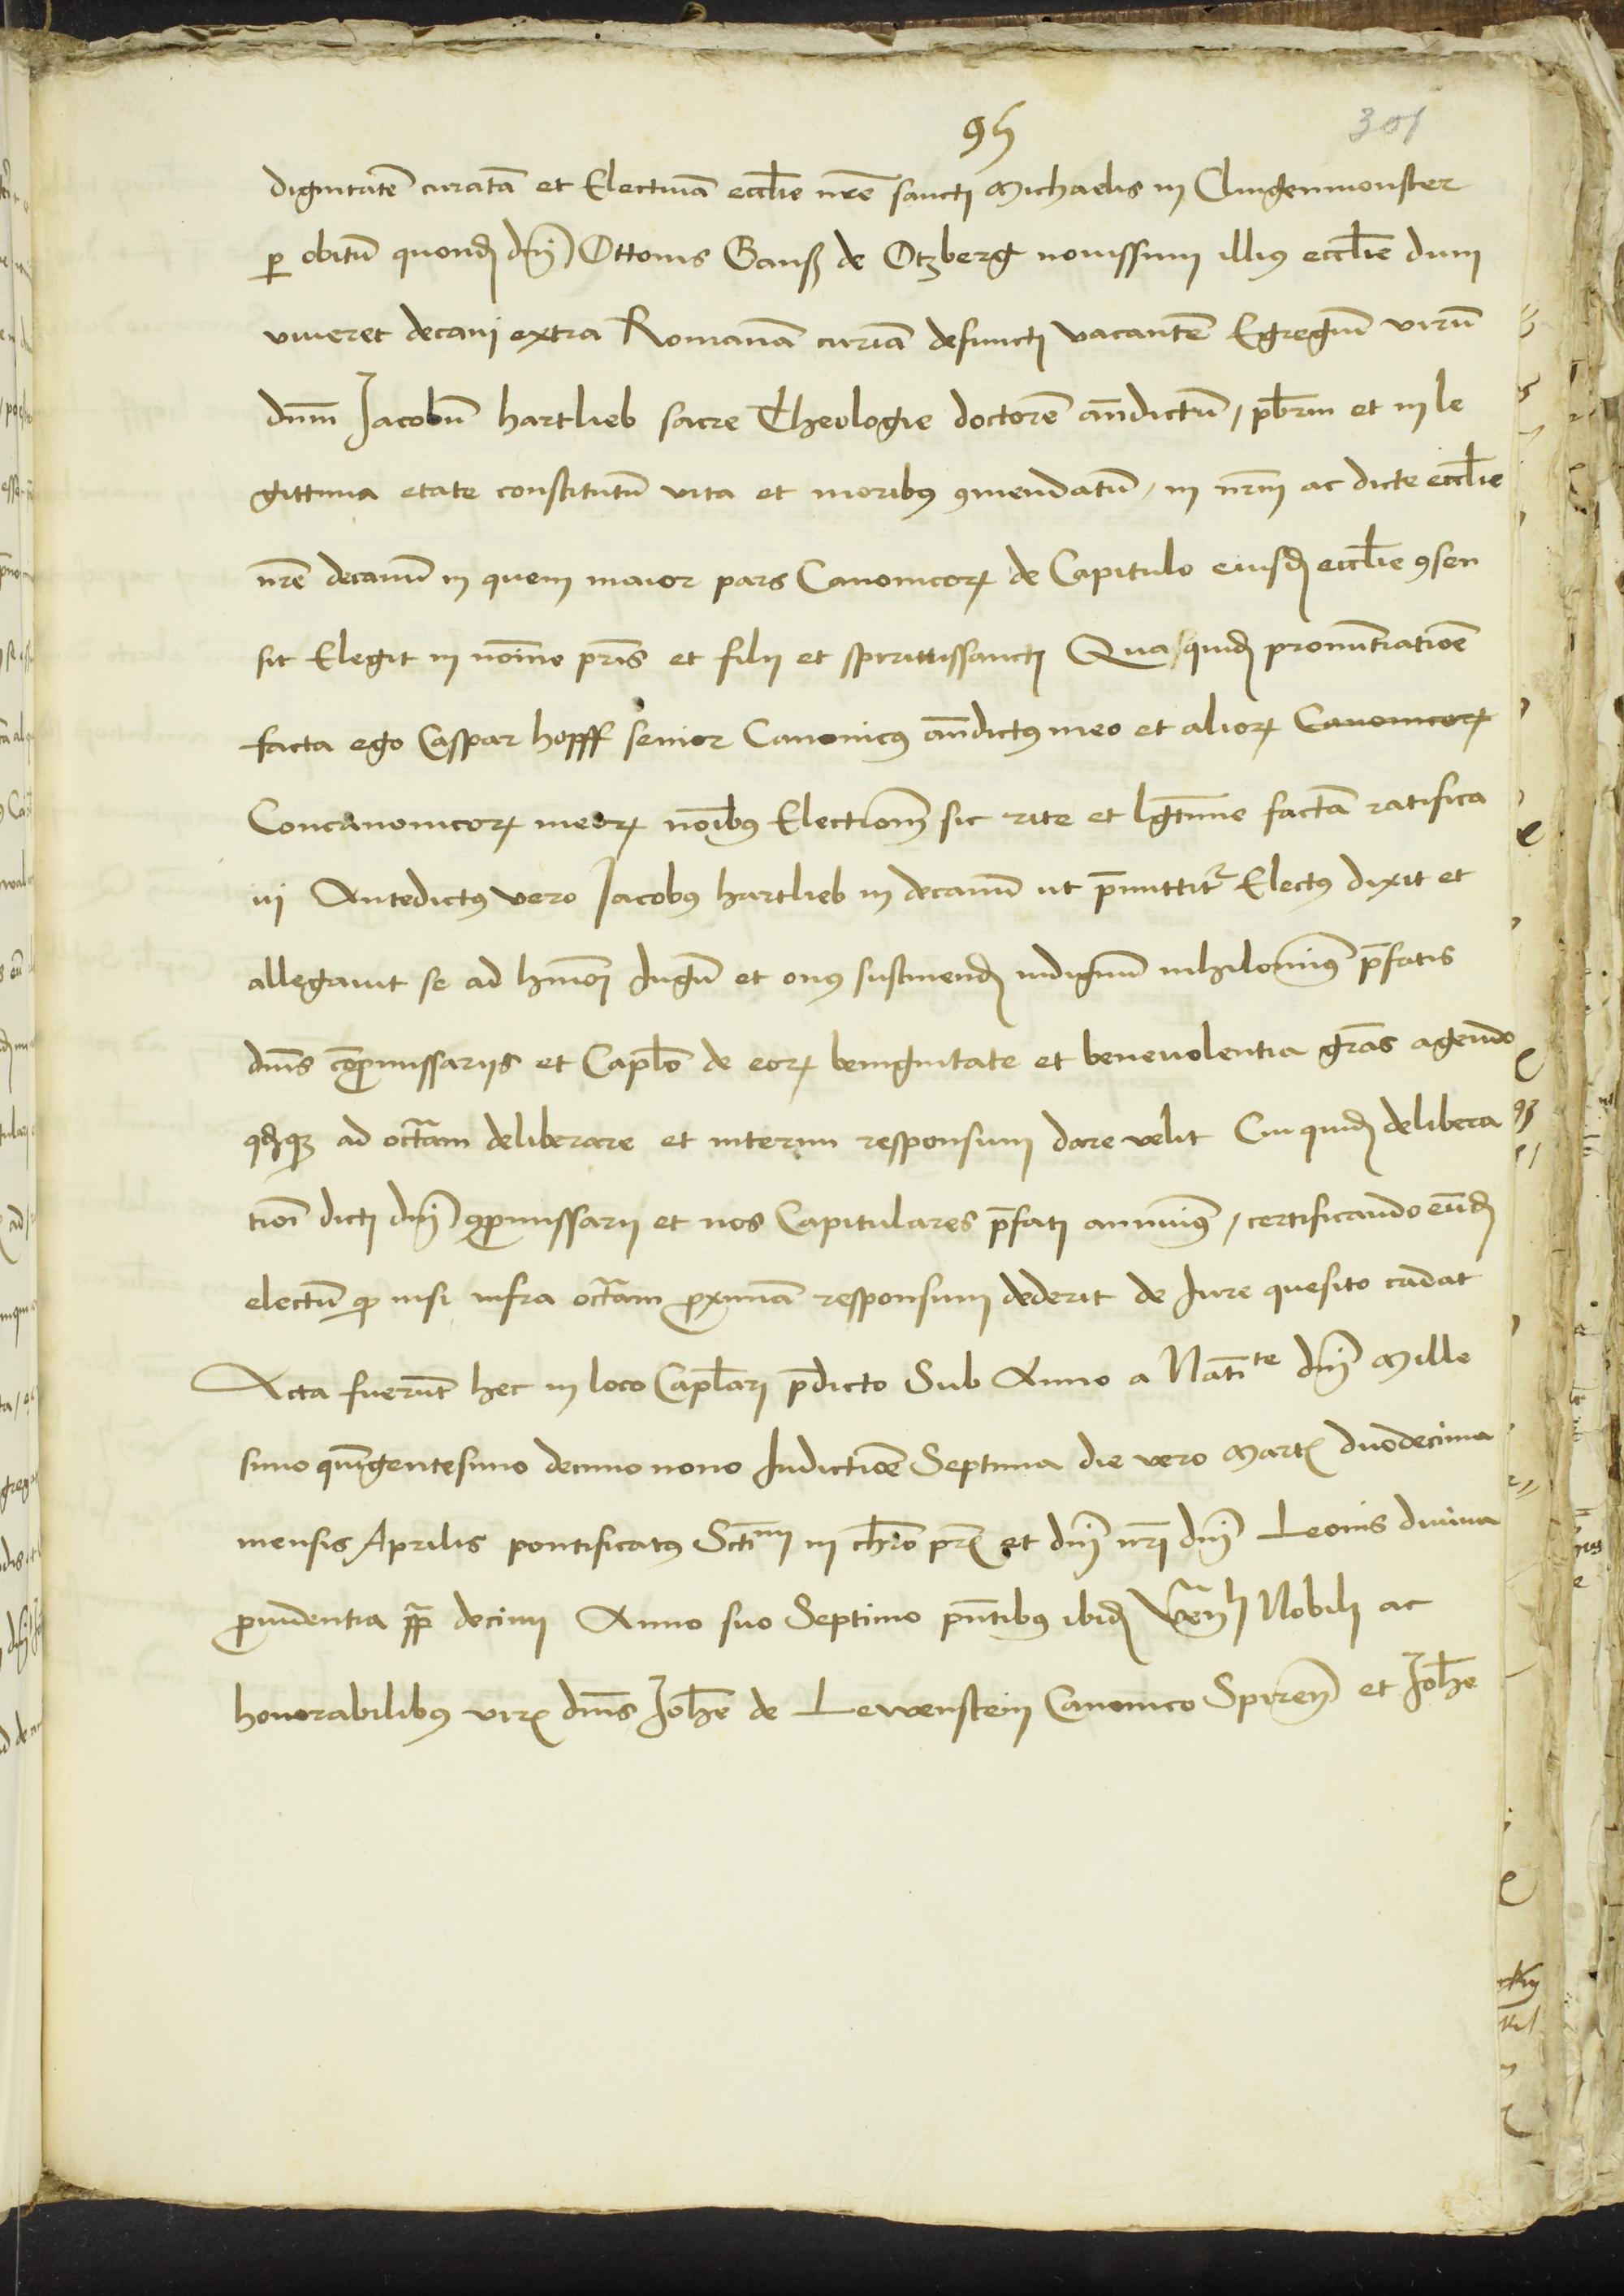 95
301
dignitatē curatā et Electiuā eccl̄ie nr̄e sancti Michaelis in Clingenmonster
ꝑ obitū quondꝫ dn̄i Ottonis Ganß de Otzberg nouissimi illiꝰ eccl̄ie dum
viueret decani extra Romanā curiā defuncti vacantē Egregiū virū
dn̄m Jacobū hartlieb sacre Theologie doctorē an̄dictū / pb̄rm et in le
gittima etate constitutū vita et moribꝰ ꝯmendatū / in nr̄m ac dicte eccl̄ie
nr̄e decanū in quem maior pars Canonicoꝝ de Capitulo eiusdꝫ eccl̄ie ꝯsen
sit Elegit in noīe pr̄is et filij et spiritussancti Qua quidꝫ pronuntiatiōe
facta ego Caspar hopff senior Canonicꝰ an̄dictꝰ meo et alioꝝ Canonicoꝝ
Concanonicoꝝ meoꝝ noībꝰ Electionem sic rite et lḡtime factā ratifica
ui Antedictꝰ vero Jacobꝰ hartlieb in decanū ut p̄mittitr̄ Electꝰ dixit et
allegauit se ad hmōi Jugū et onꝰ sustinendꝫ indignū nihilominꝰ p̄fatis
dn̄is cōpromissarijs et Capl̄o de eoꝝ benignitate et beneuolentia gr̄as agendo
ad octauam deliberare et interim responsum dare velit Cui quidꝫ delibera
tioī dicti dn̄i ꝯpromissarij et nos Capitulares p̄fati annuimꝰ / certificando eūdꝫ
electū ꝙ nisi infra octauam ꝓximā responsum dederit de Jure quesito cadat
Acta fuerūt hec in loco Capl̄ari p̄dicto Sub Anno a Natīte dn̄i Mille
simo quīngentesimo decimo nono Indictiōe Septima die vero Martꝭ duodecima
mensis Aprilis pontificatꝰ Sctīmi in chr̄o pr̄is et dn̄i nr̄i dn̄i Leonis diuina
ꝓuidentia pp̄ decimi Anno suo Septimo pn̄tibꝰ ibidꝫ Ven̄li Nobili ac
honorabilibꝰ virꝭ dn̄is Joh̄e de Lewenstein Canonico Spiren̄ et Joh̄e